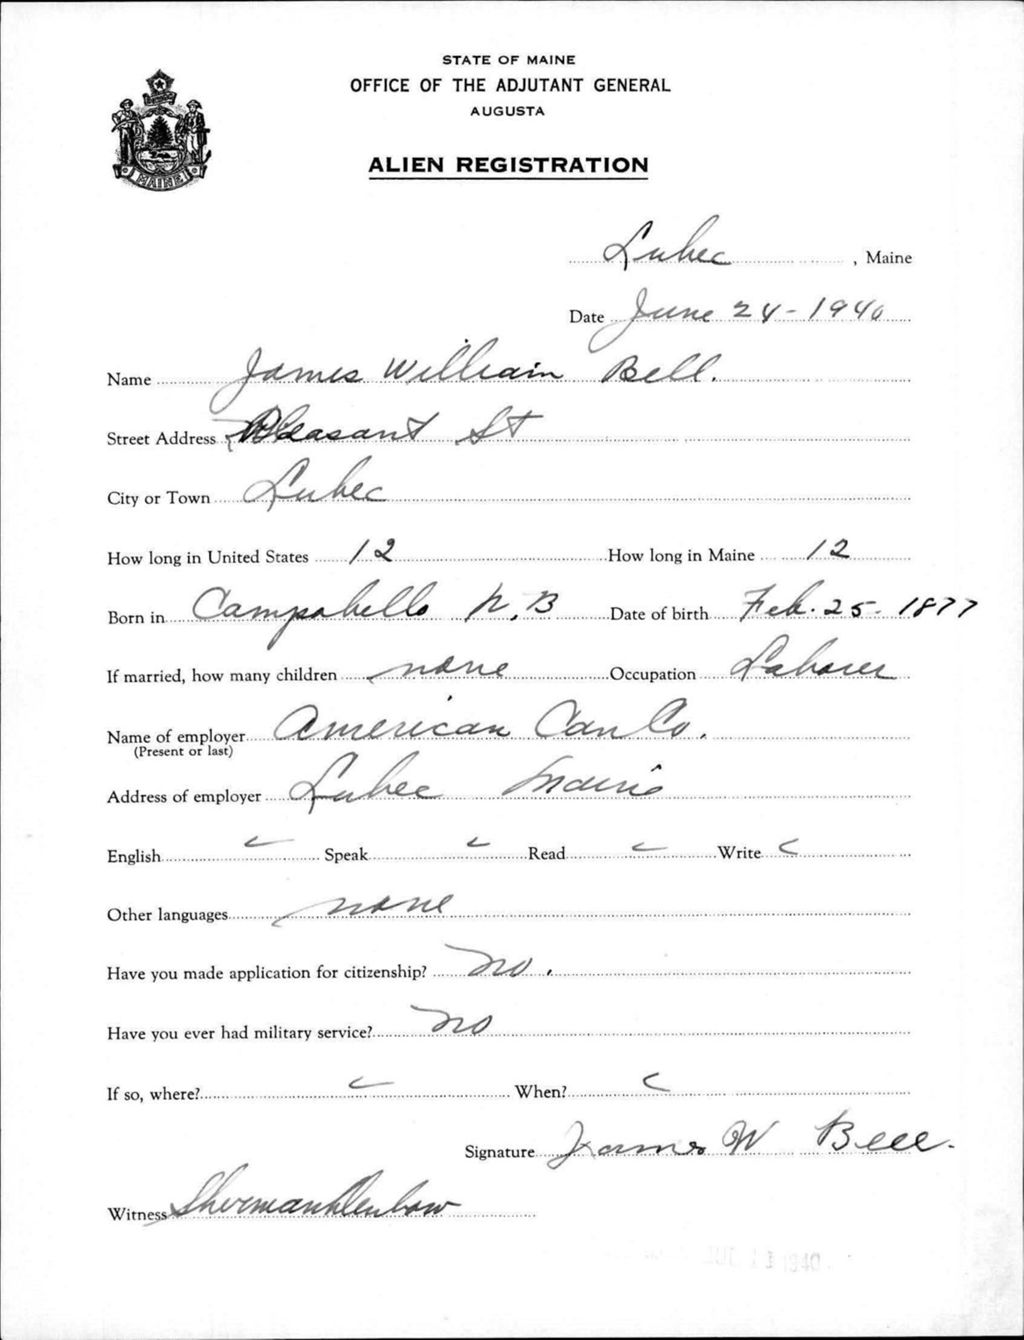 STATE OF MAINE
OFFICE OF THE ADJUTANT GENERAL
AUGUSTA
MAINE
ALIEN REGISTRATION
Lubec, Maine
Date June 24-1940
Name James William Bell.
Street Address Pleasant St
City or Town Lubec
How long in United States 12 How long in Maine 12
Born in Campobello N.B Date of birth Feb. 25-1877
If married, how many children none Occupation Laborer
Name of employer American Can Co.
(Present or last)
Address of employer Lubec Maine
English Speak Read Write
Other languages none
Have you made application for citizenship? No.
Have you ever had military service? No
If so, where? When?
Signature James W Bell.
Witness Sherman Denbow